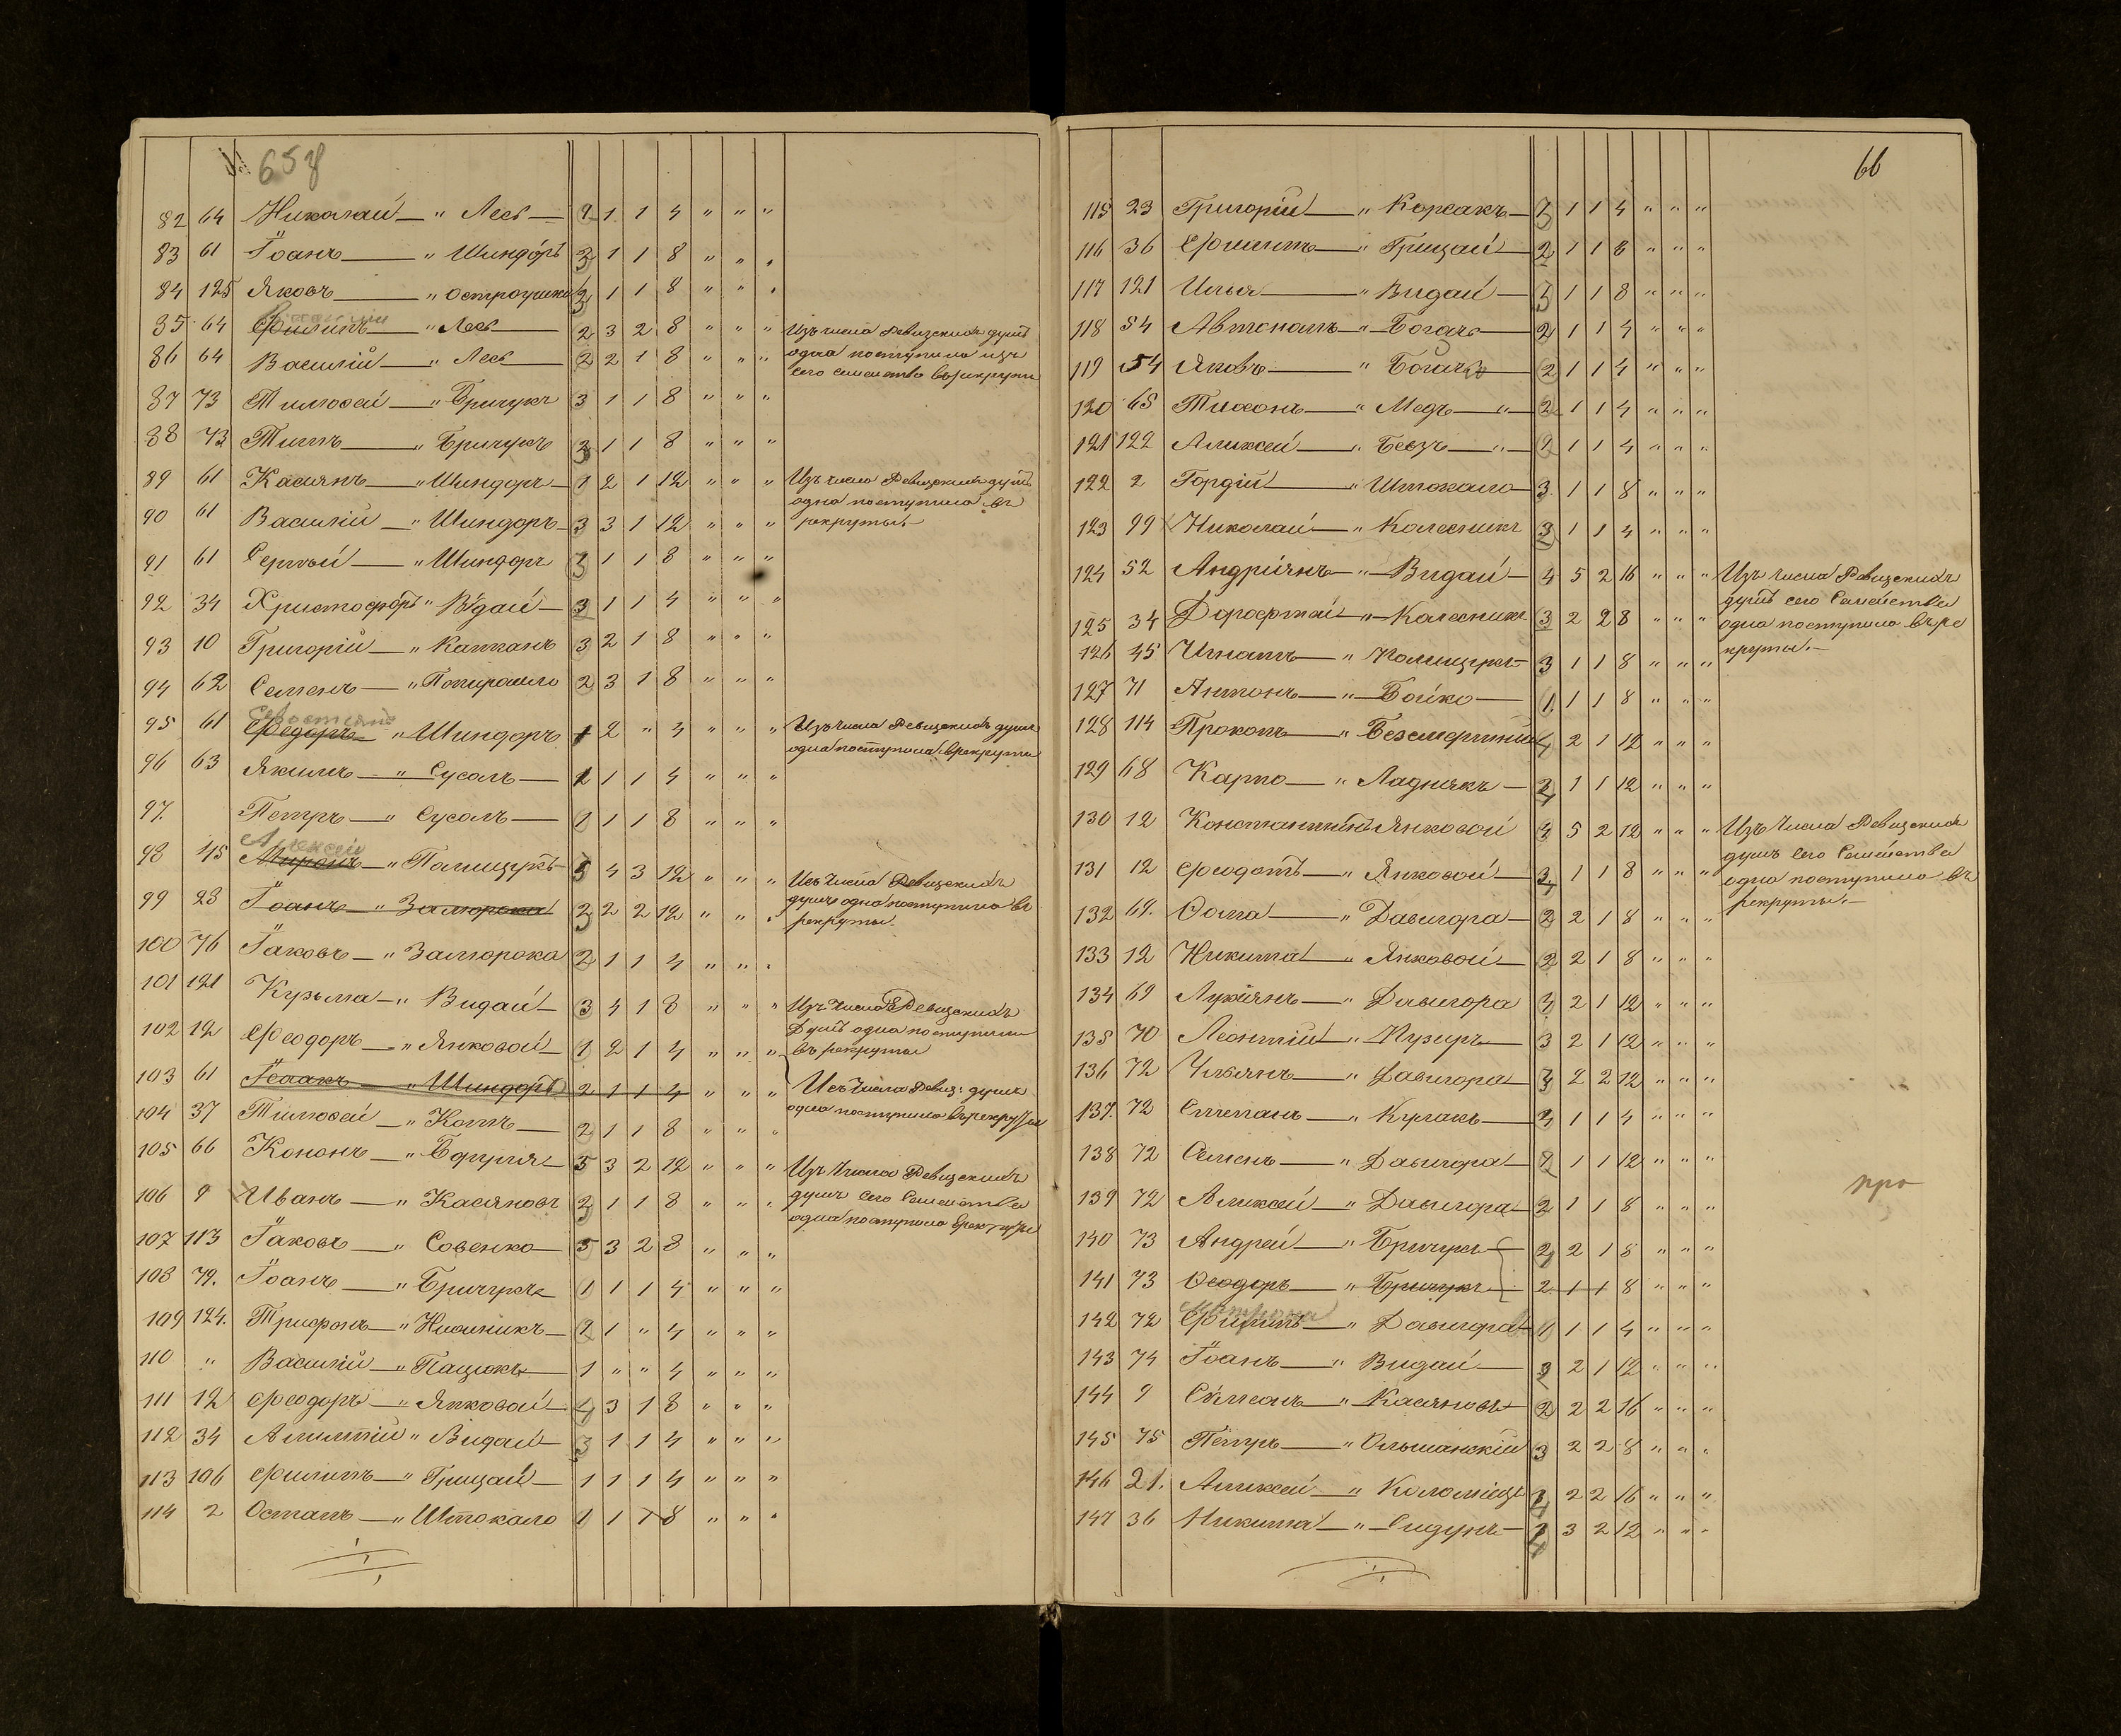 658
82 64 Николай — " Лесь — 1 1 4 " " "
83 61 Іоанъ — " Шиндоръ 3 1 1 8 " " "
84 125 Яковъ — " Остроушко 1 1 8 " " "
85 64 Филипъ — " Лесь — 2 3 2 8 " " " Изъ числа Ревизскихъ душъ
86 64 Василій — " Лесь — 2 2 1 8 " " " одна поступила изъ
сего семейства въ рекруты
87 73 Тимофей — " Бричукъ 3 1 1 8 " " "
88 73 Титъ — " Бричукъ 3 1 1 8 " " "
89 61 Касіянъ — " Шиндоръ — 1 2 1 12 " " " Изъ числа Ревизскихъ душъ
одна поступила въ
90 61 Василій — " Шиндоръ — 3 3 1 12 " " " рекруты. —
91 61 Сергѣй — " Шиндоръ 3 1 1 8 " " "
92 34 Христофоръ " Видай — 3 1 1 4 " " "
93 10 Григорій — " Каптанъ 3 2 1 8 " " "
94 62 Семенъ — " 2 3 1 8 " " "
95 61 Федоръ — " Шиндоръ 1 2 " 4 " " " Изъ числа Ревизскихъ душъ
одна поступила в рекруты
96 63 Якимъ — " Сусолъ — 1 1 1 4 " " "
97. Петръ — " Сусолъ — 1 1 1 8 " " "
Алексей
98 45 Миронъ — " Полищукъ 5 4 3 12 " " " Изъ числа Ревизскихъ
99 23 Іоанъ — " Заморока 3 2 2 12 " " " душъ одна поступила въ
рекруты.
100 76 Іаковъ — " Заморока 2 1 1 4 " " "
101 121 Кузьма — " Видай — 3 4 1 8 " " " Изъ числа Ревизскихъ
Душъ одна поступила
102 12 Феодоръ — " Янковой — 1 2 1 4 " " " въ рекруты
103 61 Ісаакъ — " Шиндоръ 2 1 1 4 " " " Изъ числа Ревиз: душъ
одна поступила въ рекруты
104 37 Тимофей — " Котъ — 2 1 1 8 " " "
105 66 Кононъ — " 5 3 2 12 " " " Изъ числа Ревизскихъ
106 9 Иванъ — " Касяновъ 2 1 1 8 " " " душъ сего Семейства
одна поступила в рекруты
107 113 Іаковъ — " Совенко — 5 3 2 8 " " "
108 79. Іоанъ — " Бричукъ 1 1 1 4 " " "
109 124. Трифонъ — " 1 " 4 " " "
110 " Василій — " Пацюкъ 1 " " 4 " " "
111 12 Феодоръ — " Янковой — 4 3 1 8 " " "
112 34 " Видай — 3 1 1 4 " " "
113 106 Филипъ — " Грицай — 1 1 1 4 " " "
114 2 Остапъ — " Штокало 1 1 8 " " "
66
115 23 Григорій — " Корсакъ — 3 1 1 4 " " "
116 36 Филипъ — " Грицай — 2 1 1 8 " " "
117 121 Илья — " Видай — 3 1 1 8 " " "
118 54 Автономъ — " Богачъ — 2 1 1 4 " " "
119 54 Яковъ — " Богачъ — 2 1 1 4 " " "
120 65 Тихонъ — " Медъ — " 2 1 1 4 " " "
121 122 Аликсей — " Безъ — " 1 1 4 " " "
122 2 Гордій — " Штокало — 3 1 1 8 " " "
123 99 Николай — " Колесникъ 3 1 1 4 " " "
124 52 Андріянъ — " Видай — 4 5 2 16 " " " Изъ числа Ревизскихъ
душъ сего Семейства
125 34 Дорофтей — " Колесникъ 3 2 2 8 " " " одна поступила въ ре
126 45 Игнатъ — " Полищукъ — 3 1 1 8 " " " круты. —
127 71 Антонъ — " Бойко — 1 1 1 8 " " "
128 114 Прокопъ — " 4 2 1 12 " " "
129 68 Карпо — " Ладнякъ — 1 1 12 " " "
130 12 Константинъ Янковой 4 5 2 12 " " " Изъ Числа Ревизскихъ
душъ сего Семейства
131 12 Феодотъ — " Янковой — 3 1 1 8 " " " одна поступила въ
132 69. Фома — " Давигора — 2 2 1 8 " " " рекруты. —
133 12 Никита — " Янковой — 2 2 1 8 " " "
134 69 Лукіянъ — " Давигора 2 1 12 " " "
135 70 Леонтій — " Пузыръ — 3 2 1 12 " " "
136 72 Ульянъ — " Давигора — 2 2 12 " " "
137. 72 Степанъ — " Кулакъ — 1 1 4 " " "
138 72 Семенъ — " Давигора — 1 1 12 " " "
139 72 Аликсей — " Давигора — 2 1 1 8 " " " про
140 73 Андрей — " Бричукъ — 2 2 1 8 " " "
141 73 Феодоръ — " Бричукъ — 2 1 1 8 " " "
142 72 Филипъ — " Давигора 1 1 1 4 " " "
143 74 Іоанъ — " Видай — 3 2 1 12 " " "
144 9 Симеонъ — " Касяновъ 2 2 2 16 " " "
145 75 Петръ — " Ольшанскій 3 2 2 8 " " "
146 21. Аликсей — " Коломіецъ 2 2 16 " " "
147 36 Никита — " Сидунъ — 3 2 12 " " "